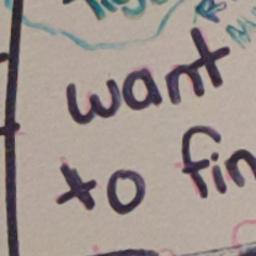 want
to fin